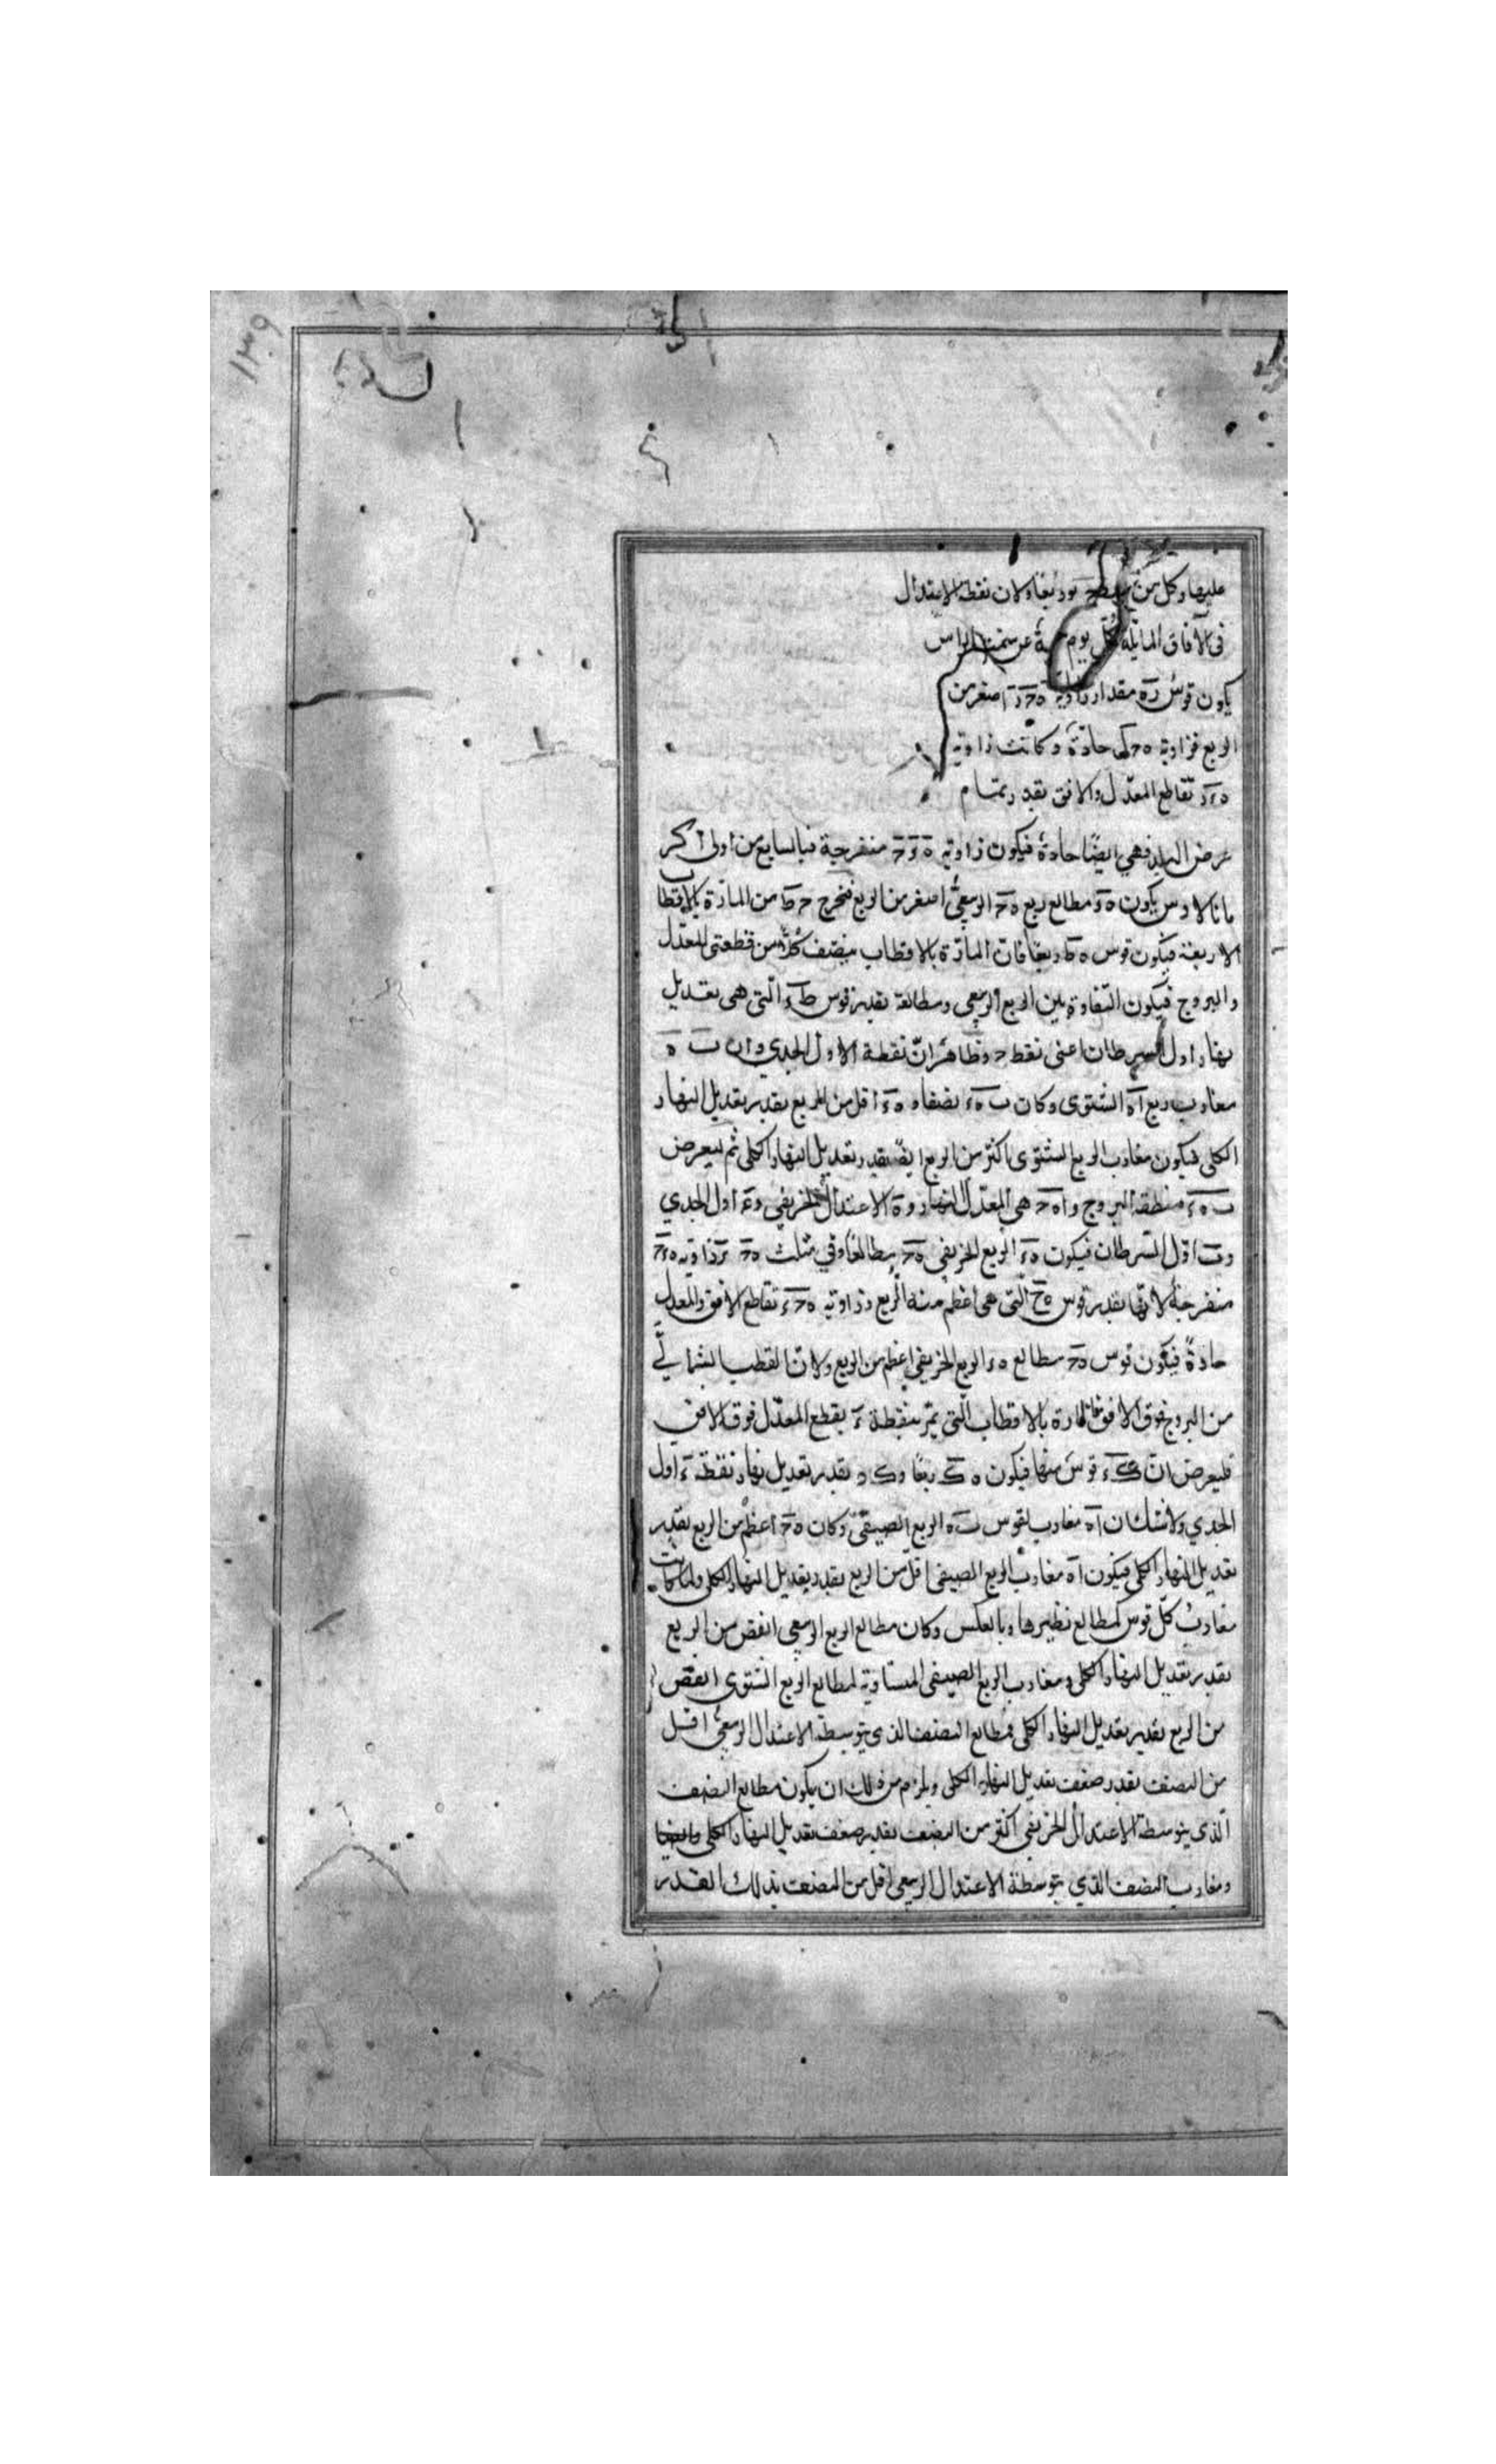 ١٣٩
عليها وكل من ربعا ولان نقطة الاعتدال
فى الآفاق المايلة كل يوم عن سمت الراس
يكون قوس ره مقدار زاوية ه ح ر اصغر من
الربع فزاوية حادة وكانت زاوية
تقاطع المعدل والافق بقدر تمام
عرض البلد فهي ايضًا حادة فيكون زاوية ه و ح منفرجة فبالسابع من اولى اكر
مانالاوس يكون ه و مطالع ربع ه ح الربيعيّ اصغر من الربع فنخرج ح ط من المارّة بالاقطاب
الاربعة فيكون قوس ه ط ربعا فان المارّة بالاقطاب ينصّف كلًّا من قطعتى المعدّل
والبروج فيكون التفاوت بين الربع الربيعى ومطالعه بقدر قوس ط و الّتى هى تعديل
نهار اول السرطان اعنى نقطة ح وظاهر انّ نقطة ا اول الجدي وان ب ه
مغارب ربع ا ه الشتوى وكان ب ه و نصفا و ه و اقل من الربع بقدر تعديل النهار
الكلى فيكون مغارب الربع الشتوى اكثر من الربع ايضًا بقدر تعديل النهار الكلى ثم ليعرض
ب ه ء منطقة البروج و ا ه ح هى المعدّل النهار و ه الاعتدال الخريفي و ء اول الجدي
و ب اوّل السّرطان فيكون ه ء الربع الخريفى ه ح مطالعًا وفي مثلث زاوية
منفرجة لانّها بقدر قوس الّتى هى اعظم من الربع وزاوية ه ح ء تقاطع الافق والمعدل
حادةً فيكون قوس ه ح مطالع ه ء الربع الخريفى اعظم من الربع ولانّ القطب الشّماليّ
من البروج فوق الافق فالمارة بالاقطاب الّتى تمرّ بنقطة ء يقطع المعدّل فوق الافق
فليعرض انّ ك ء قوسٌ منها فيكون ه ك ربعًا بقدر تعديل نهار نقطة ء اول
الجدي ولا شك ان ا ه مغارب لقوس ب ه الربع الصيفيّ وكان ه ح اعظم من الربع بقدر
تعديل النهار الكلى فيكون ا ه مغارب الربع الصيفى اقلّ من الربع بقدر تعديل النهار الكلى ولمّا كانت
مغارب كلّ قوس كمطالع نظيرها وبالعكس وكان مطالع الربع الربيعى انقص من الربع
بقدر تعديل النهار الكلى ومغارب الربع الصيفى المساوية لمطالع الربع الشتوى انقص
من الربع بقدر تعديل النهار الكلى فمطالع النصف الذى يتوسطه الاعتدال الربيعيّ اقل
من النصف بقدر ضعف تعديل النهار الكلى ويلزم من ذلك ان يكون مطالع النصف
الّذى يتوسطه الاعتدال الخريفى اكثر من النصف بقدر ضعف تعديل النهار الكلى وايضا
ومغارب النصف الذي يتوسطه الاعتدال الربيعى اقل من النصف بذلك القدر